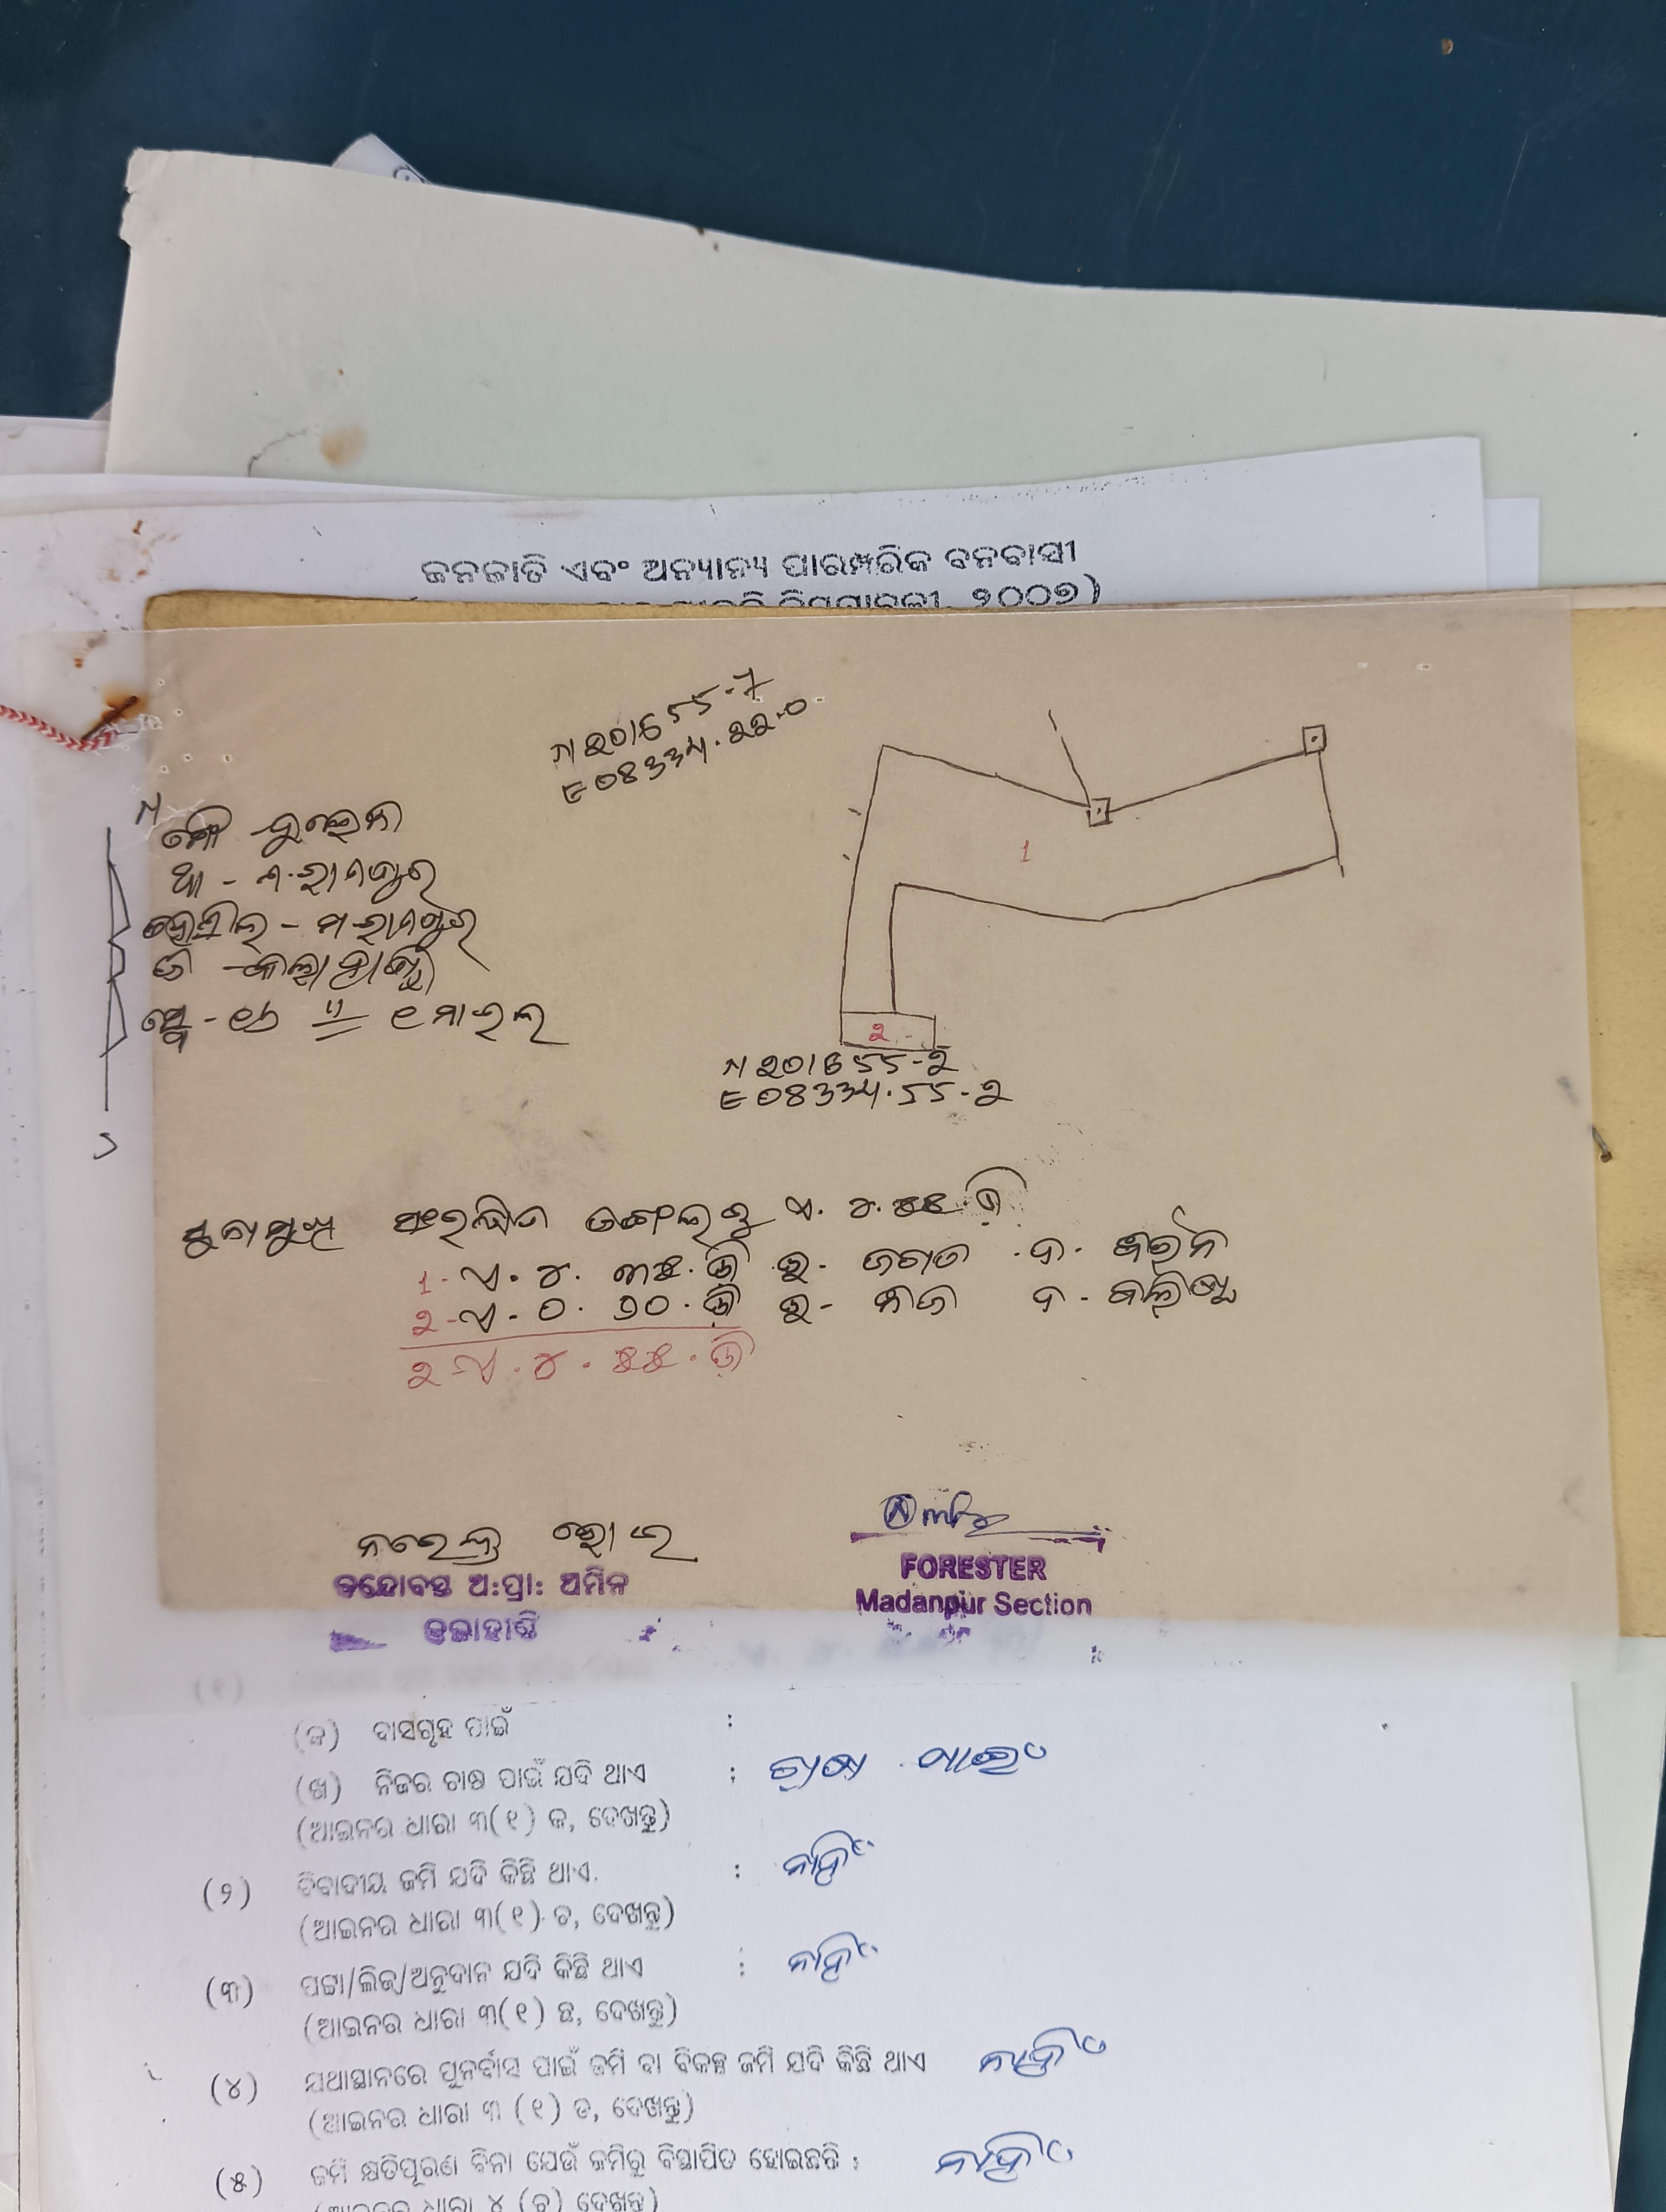 ଜନଜାତି ଏବଂ ଅନ୍ୟାନ୍ୟ ପାରମ୍ପରିକ ବନବାସୀ
ନିୟମାବଳୀ, ୨୦୦୭)
N 201655-7
E 08334.22.0
N
ମୌ - ଦୁଲେନ
ଥା - ମ.ରାମପୁର
ତହସିଲ - ମ.ରାମପୁର
ଜି - କଳାହାଣ୍ଡି
ସ୍କେ - ୧୬ " = ୧ ମାଇଲ
S
1
2
N 201655-2
E 08334.55-2
ଜଙ୍ଗଲରୁ ଏ. ୪. ୫୫ ଡି
1 - ଏ. ୪. ୩୫. ଡି ଉ- ଜଗତ ଦ-
2 - ଏ - ୦. ୨୦. ଡି ଉ- ନିଜ ଦ-
2 - ଏ. ୪. ୫୫. ଡି
ନରେନ୍ଦ୍ର ଭୋଇ
ବନ୍ଦୋବସ୍ତ ଅ:ପ୍ରା: ଅମିନ
କଳାହାଣ୍ଡି
FORESTER
Madanpur Section
(୧)
(କ) ବାସଗୃହ ପାଇଁ :
(ଖ) ନିଜର ଚାଷ ପାଇଁ ଯଦି ଥାଏ : ଚାଷ ପାଇଁ
(ଆଇନର ଧାରା ୩(୧) କ, ଦେଖନ୍ତୁ)
(୨) ବିବାଦୀୟ ଜମି ଯଦି କିଛି ଥାଏ. : ନାହିଁ
(ଆଇନର ଧାରା ୩(୧) ଚ, ଦେଖନ୍ତୁ)
(୩) ପଟ୍ଟା/ଲିଜ୍/ଅନୁଦାନ ଯଦି କିଛି ଥାଏ : ନାହିଁ
(ଆଇନର ଧାରା ୩(୧) ଛ, ଦେଖନ୍ତୁ)
(୪) ଯଥାସ୍ଥାନରେ ପୁନର୍ବାସ ପାଇଁ ଜମି ବା ବିକଳ୍ପ ଜମି ଯଦି କିଛି ଥାଏ ନାହିଁ
(ଆଇନର ଧାରା ୩ (୧) ଡ, ଦେଖନ୍ତୁ)
(୫) ଜମି କ୍ଷତିପୂରଣ ବିନା ଯେଉଁ ଜମିରୁ ବିସ୍ଥାପିତ ହୋଇଛନ୍ତି : ନାହିଁ
(ଆଇନର ଧାରା ୪ (ଚ) ଦେଖନ୍ତୁ)